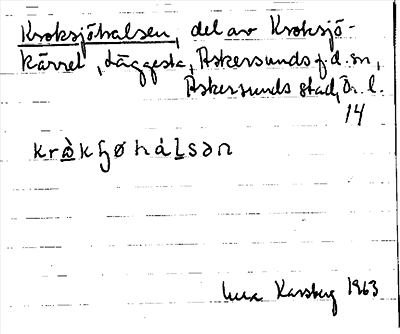 Kroksjöhalsen, del av Kroksjö-
kärret, Läggesta, Askersunds f.d. sn,
Askersunds stad, Ör. l.
14
kràkʃøhálsən
Karsberg 1963